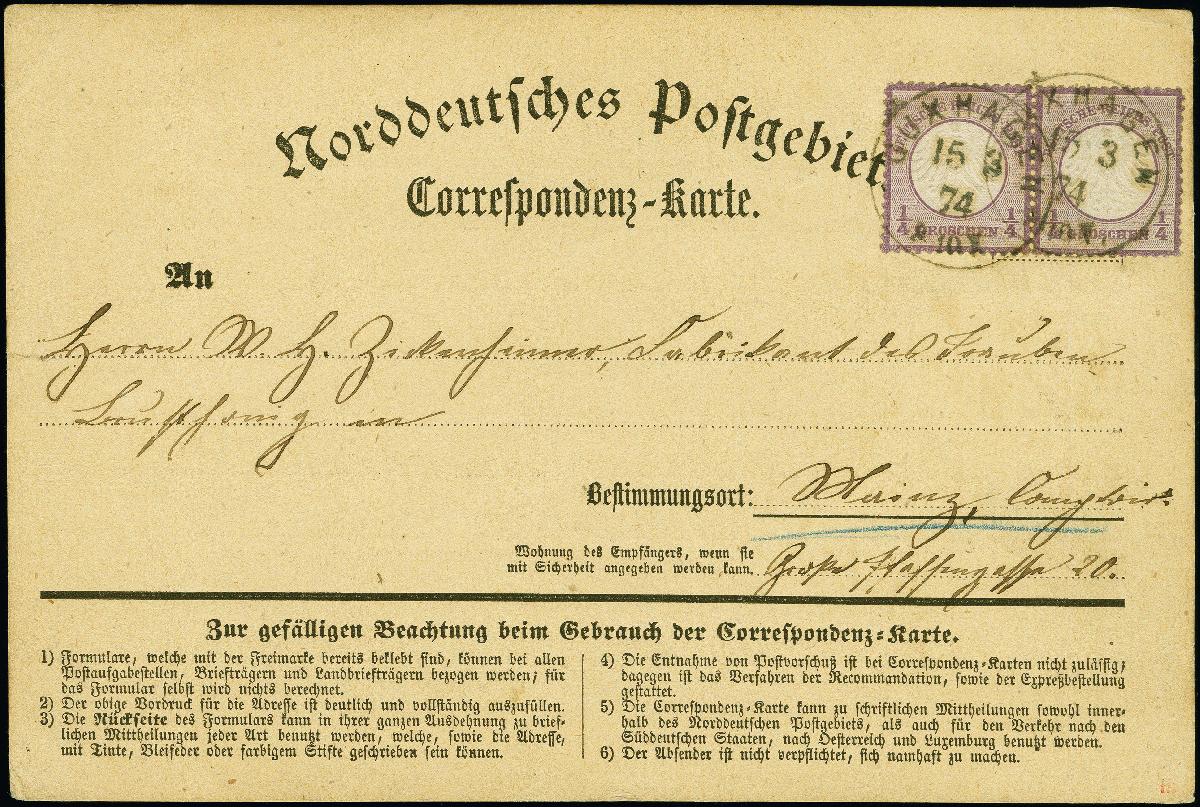 Norddeutſches Poſtgebiet.
Correſpondenz-Karte.
GUXHAGEN
15 3
74
GUXHAGEN
15 3
74
1/4 GROSCHEN 1/4
1/4 GROSCHEN 1/4
An
Herrn W. H. Zickenheimer, Fabrikant des Trauben
Bruſthonig in
Beſtimmungsort: Mainz, Comptoir
Wohnung des Empfängers, wenn ſie
mit Sicherheit angegeben werden kann. Große Pfaffengaſſe 20.
Zur gefälligen Beachtung beim Gebrauch der Correſpondenz-Karte.
1) Formulare, welche mit der Freimarke bereits beklebt ſind, können bei allen
Poſtaufgabeſtellen, Briefträgern und Landbriefträgern bezogen werden; für
das Formular ſelbſt wird nichts berechnet.
2) Der obige Vordruck für die Adreſſe iſt deutlich und vollſtändig auszufüllen.
3) Die Rückſeite des Formulars kann in ihrer ganzen Ausdehnung zu brief-
lichen Mittheilungen jeder Art benutzt werden, welche, ſowie die Adreſſe,
mit Tinte, Bleifeder oder farbigem Stifte geſchrieben ſein können.
4) Die Entnahme von Poſtvorſchuß iſt bei Correſpondenz-Karten nicht zuläſſig;
dagegen iſt das Verfahren der Recommandation, ſowie der Expreßbeſtellung
geſtattet.
5) Die Correſpondenz-Karte kann zu ſchriftlichen Mittheilungen ſowohl inner-
halb des Norddeutſchen Poſtgebiets, als auch für den Verkehr nach den
Süddeutſchen Staaten, nach Oeſterreich und Luxemburg benutzt werden.
6) Der Abſender iſt nicht verpflichtet, ſich namhaft zu machen.